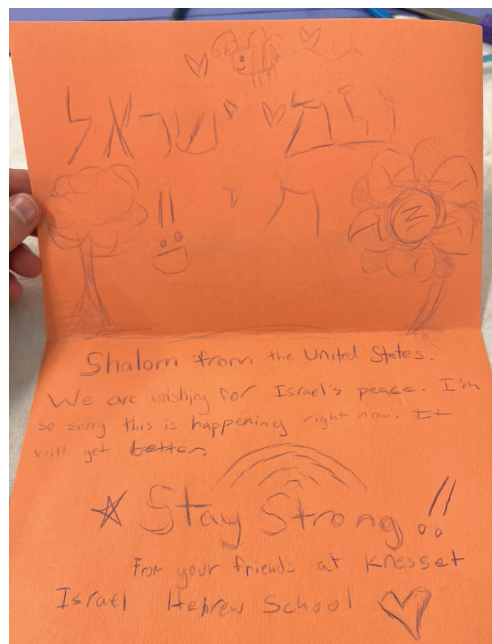 ישראל
חי !!
Shalom from the United States.
We are wishing for Israel's peace. I'm
so sorry this is happening right now. It
will get better.
Stay Strong!!
From your friends at Knesset
Israel Hebrew School